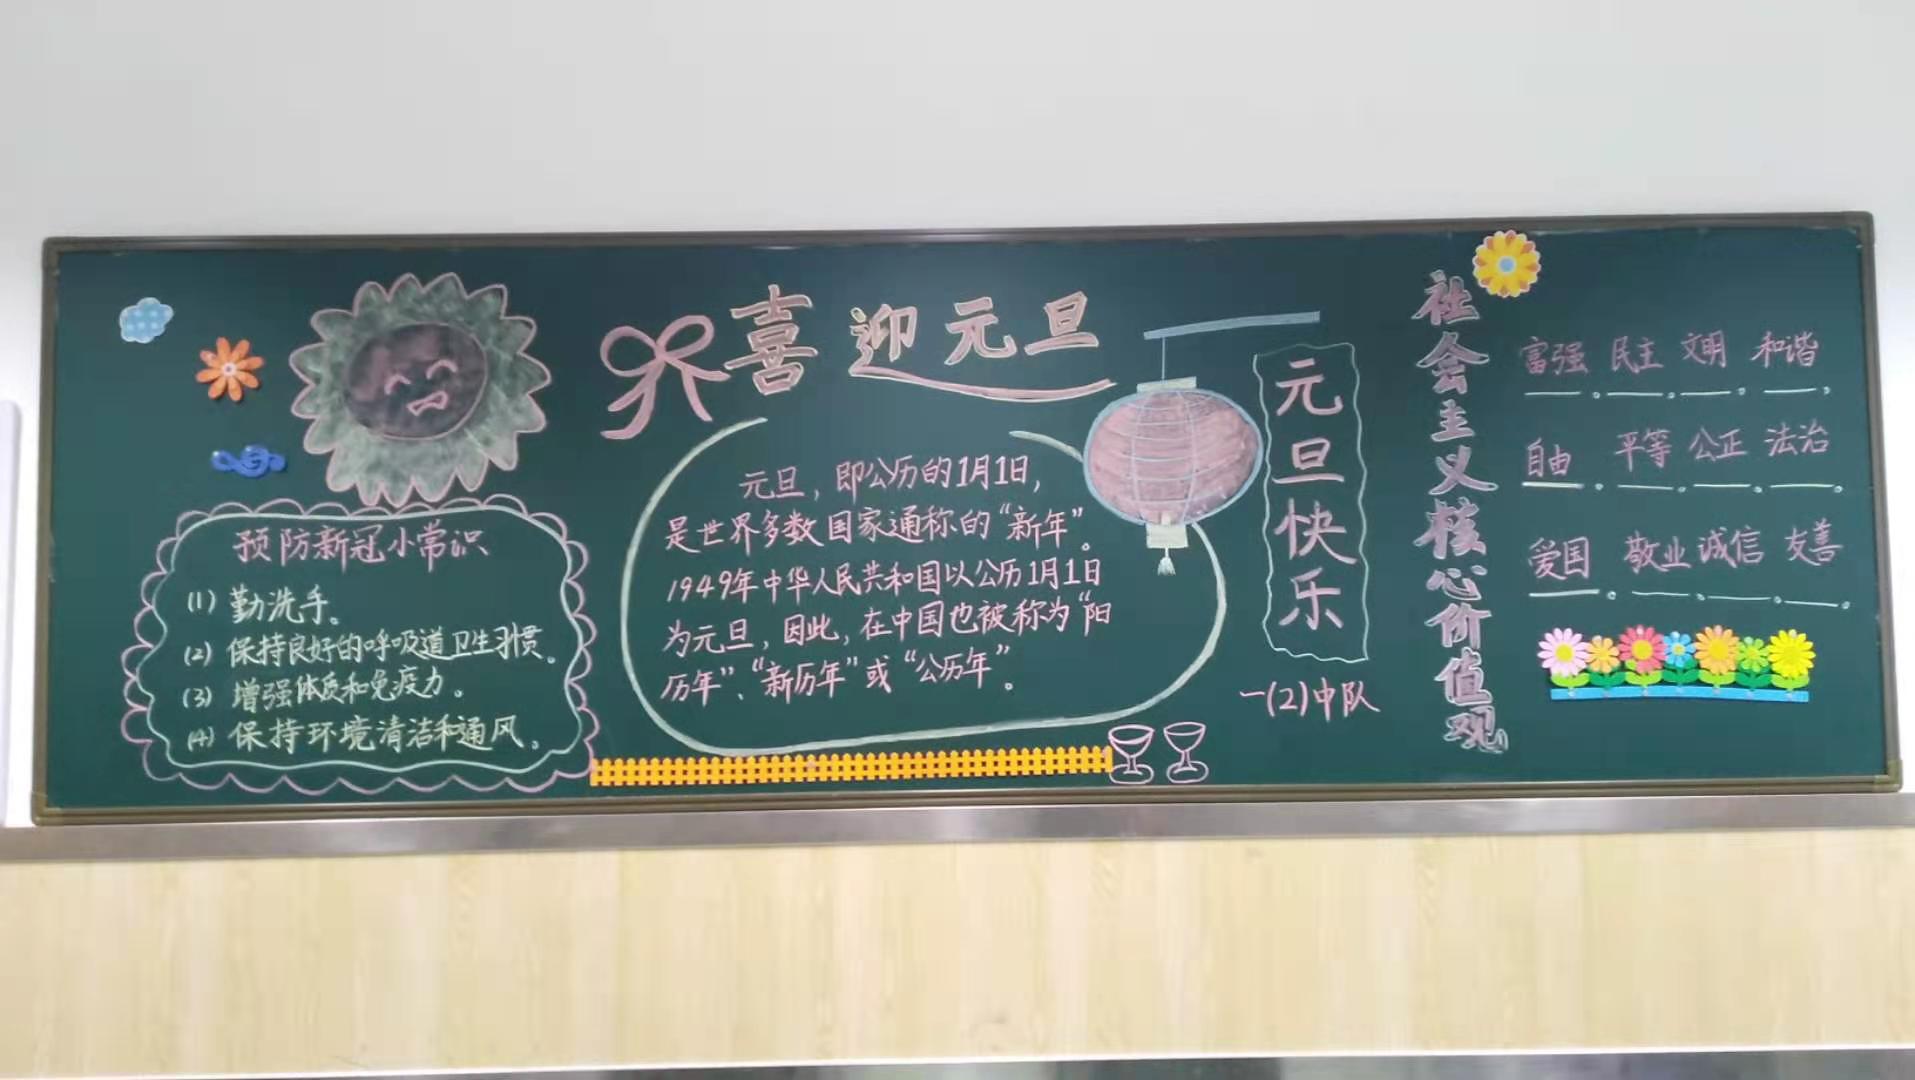 喜迎元旦
预防新冠小常识
(1) 勤洗手。
(2) 保持良好的呼吸道卫生习惯。
(3) 增强体质和免疫力。
(4) 保持环境清洁和通风。
元旦，即公历的1月1日，
是世界多数国家通称的“新年”。
1949年中华人民共和国以公历1月1日
为元旦，因此，在中国也被称为“阳
历年”、“新历年”或“公历年”。
元旦快乐
一(2)中队
社会主义核心价值观
富强 民主 文明 和谐
自由 平等 公正 法治
爱国 敬业 诚信 友善